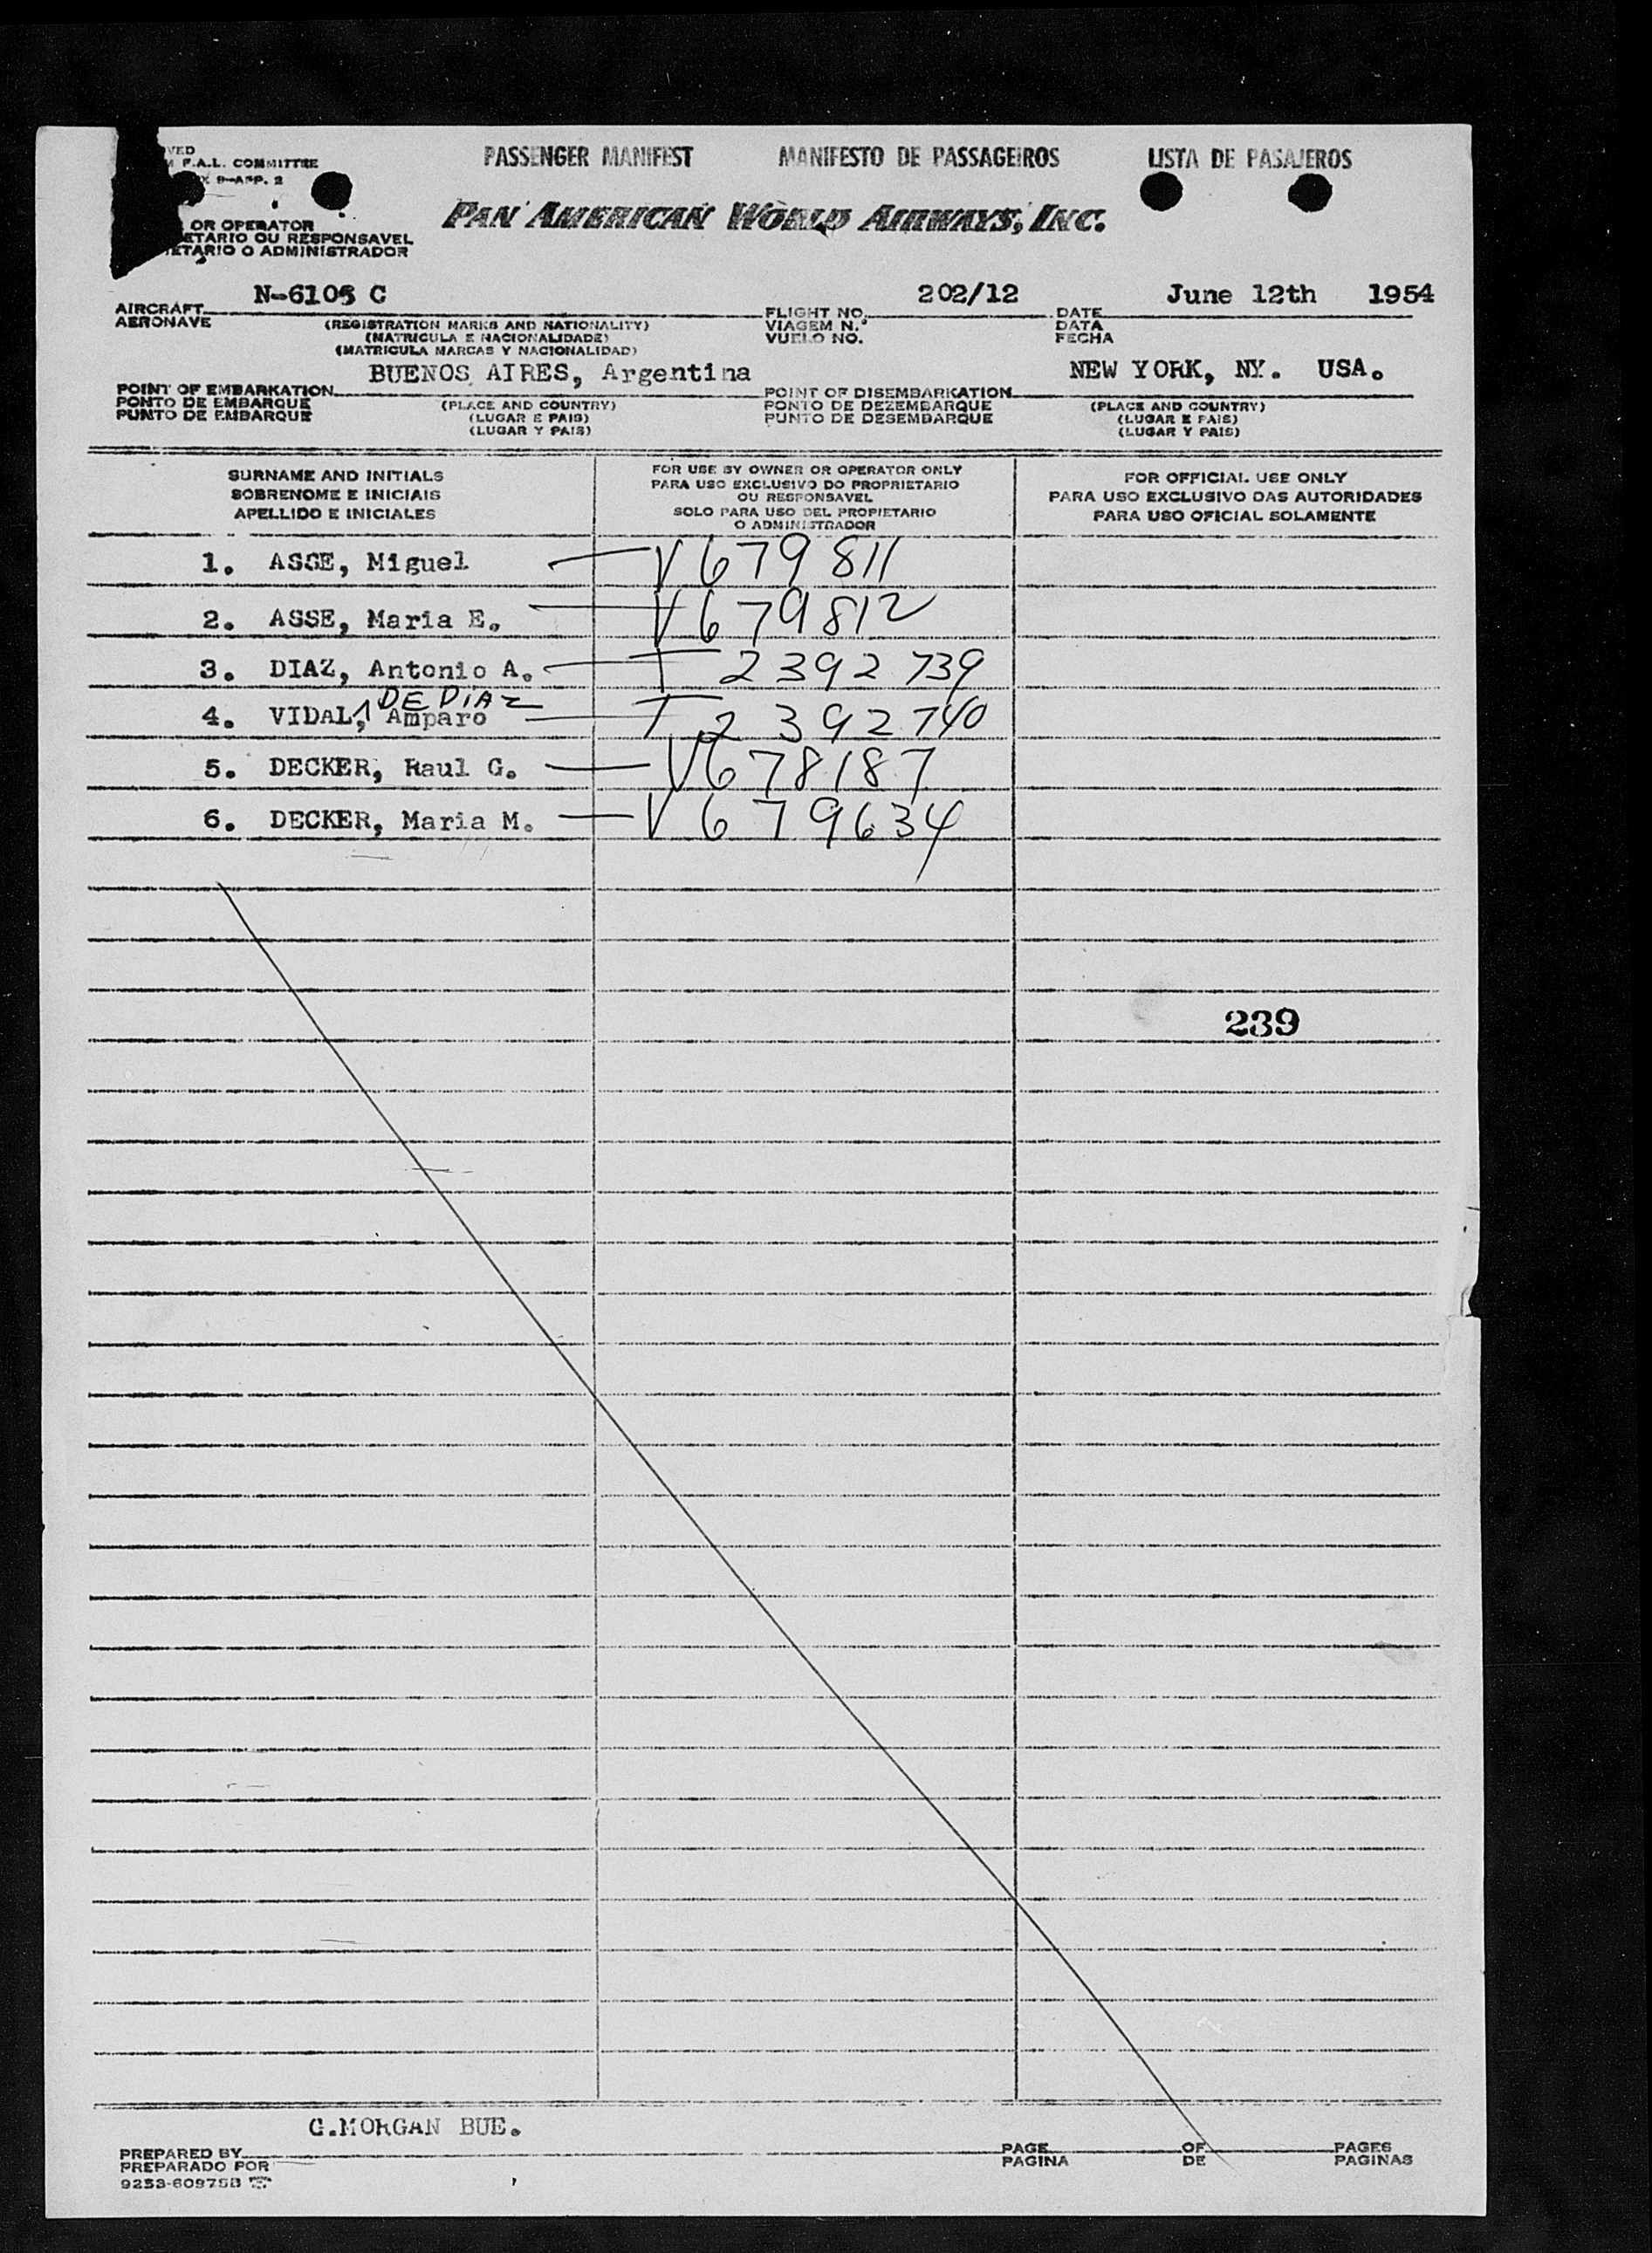 PASSENGER MANIFEST MANIFESTO DE PASSAGEIROS LISTA DE PASAJEROS
VED
F.A.L. COMMITTEE
X 9-APP. 2
PAN AMERICAN WORLD AIRWAYS, INC.
OR OPERATOR
ETARIO OU RESPONSAVEL
ETARIO O ADMINISTRADOR
N-6105 C 202/12 June 12th 1954
AIRCRAFT FLIGHT NO. DATE
AERONAVE (REGISTRATION MARKS AND NATIONALITY) VIAGEM N.º DATA
(MATRICULA E NACIONALIDADE) VUELO NO. FECHA
(MATRICULA MARCAS Y NACIONALIDAD)
BUENOS AIRES, Argentina NEW YORK, NY. USA.
POINT OF EMBARKATION POINT OF DISEMBARKATION
PONTO DE EMBARQUE (PLACE AND COUNTRY) PONTO DE DEZEMBARQUE (PLACE AND COUNTRY)
PUNTO DE EMBARQUE (LUGAR E PAIS) PUNTO DE DESEMBARQUE (LUGAR E PAIS)
(LUGAR Y PAIS) (LUGAR Y PAIS)
SURNAME AND INITIALS
SOBRENOME E INICIAIS
APELLIDO E INICIALES
FOR USE BY OWNER OR OPERATOR ONLY
PARA USO EXCLUSIVO DO PROPRIETARIO
OU RESPONSAVEL
SOLO PARA USO DEL PROPIETARIO
O ADMINISTRADOR
FOR OFFICIAL USE ONLY
PARA USO EXCLUSIVO DAS AUTORIDADES
PARA USO OFICIAL SOLAMENTE
1. ASSE, Miguel V679811
2. ASSE, Maria E. V679812
3. DIAZ, Antonio A. T 2392739
DE DIAZ
4. VIDAL, Amparo T 2392740
5. DECKER, Raul G. V678187
6. DECKER, Maria M. V679634
239
G.MORGAN BUE.
PREPARED BY PAGE OF PAGES
PREPARADO POR PAGINA DE PAGINAS